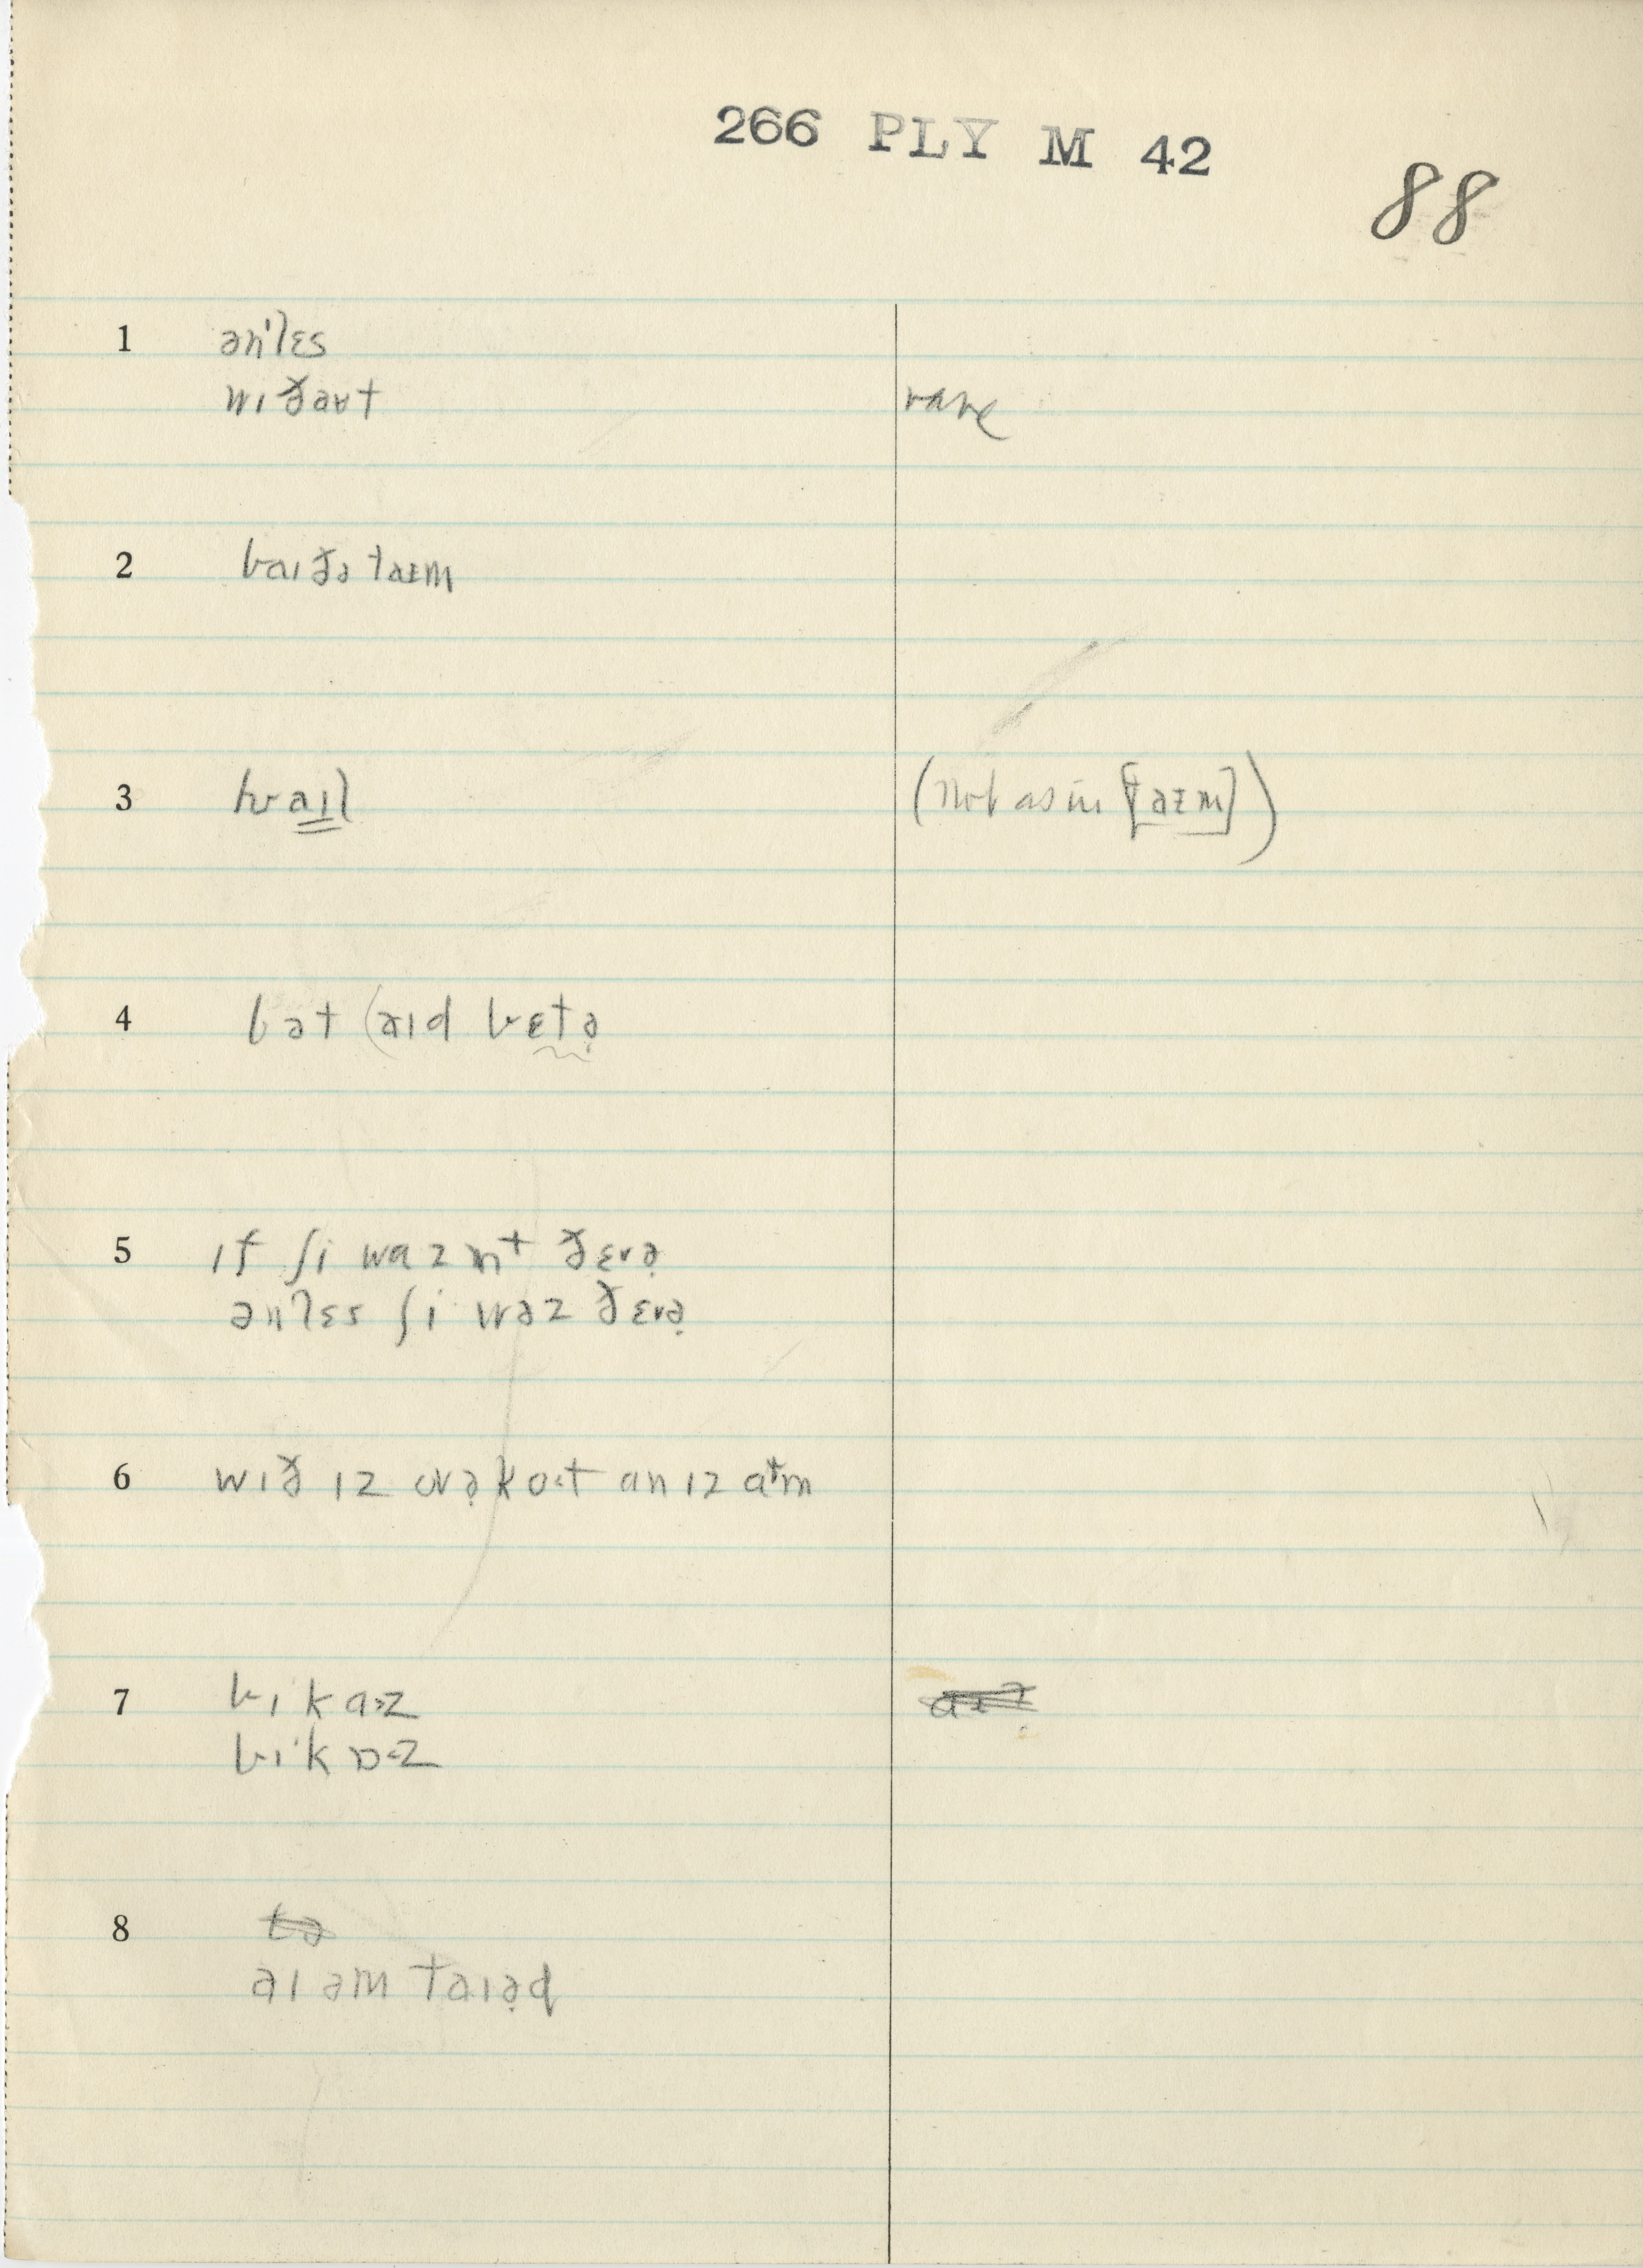 266 PLY M 42
88
1 ən'lɛs
wɪðaʊt rare
2 baɪðə taɪm
3 hwaɪl (not as in [taɪm])
4 bət aɪd bɛtə̣
5 ɪf ʃi wazn̩t ðɛrə̣
ənlɛs ʃi wəz ðɛrə̣
6 wɪð ɪz ovə̣kot an ɪz aɚm
7 bɪkaz
bɪkɒz
8 tə
aɪ əm taɪə̣d